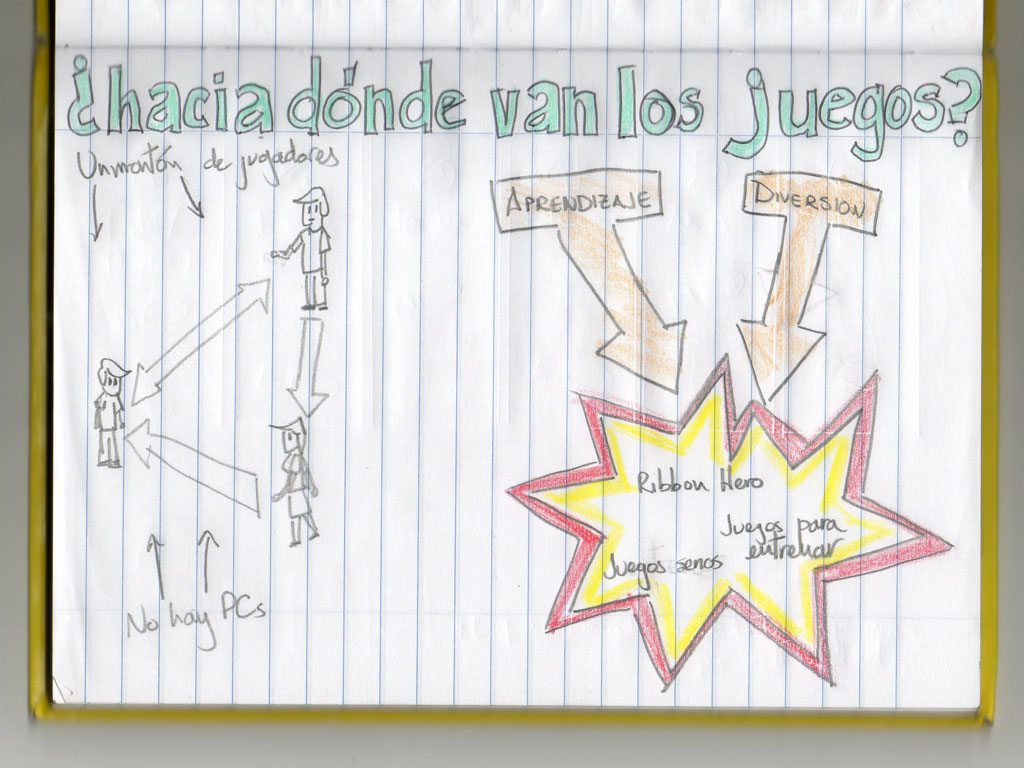 ¿hacia dónde van los juegos?
Un montón de jugadores
No hay PCs
APRENDIZAJE
DIVERSION
Ribbon Hero
Juegos para
entrenar
Juegos serios